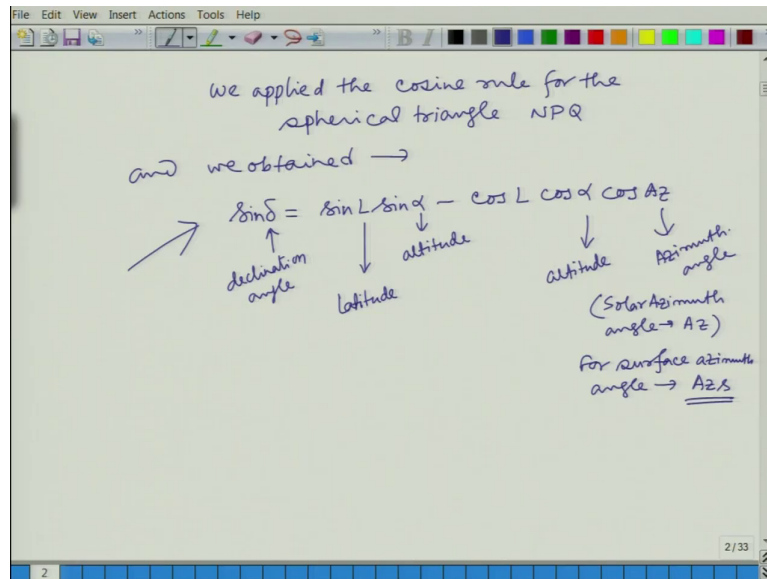 File Edit View Insert Actions Tools Help
B I
we applied the cosine rule for the
spherical triangle NPQ
and we obtained →
sinδ = sinL sinα - cosL cosα cosAz
declination angle
latitude
altitude
altitude
Azimuth angle
(Solar Azimuth
angle → Az)
For surface azimuth
angle → Azs
2/33
2